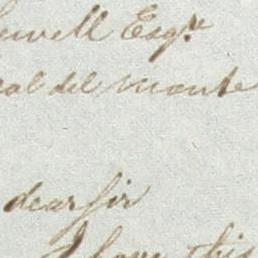 Esqre
real del monte
dear sir
I have this